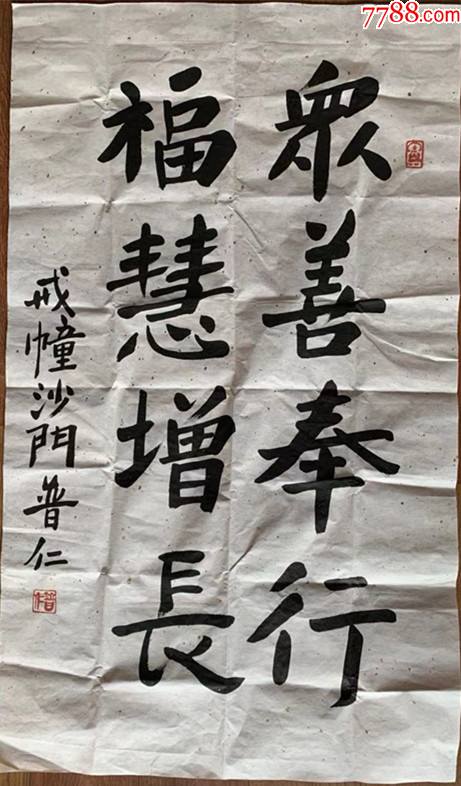 7788.com
眾善奉行
福慧增長
戒幢沙門普仁